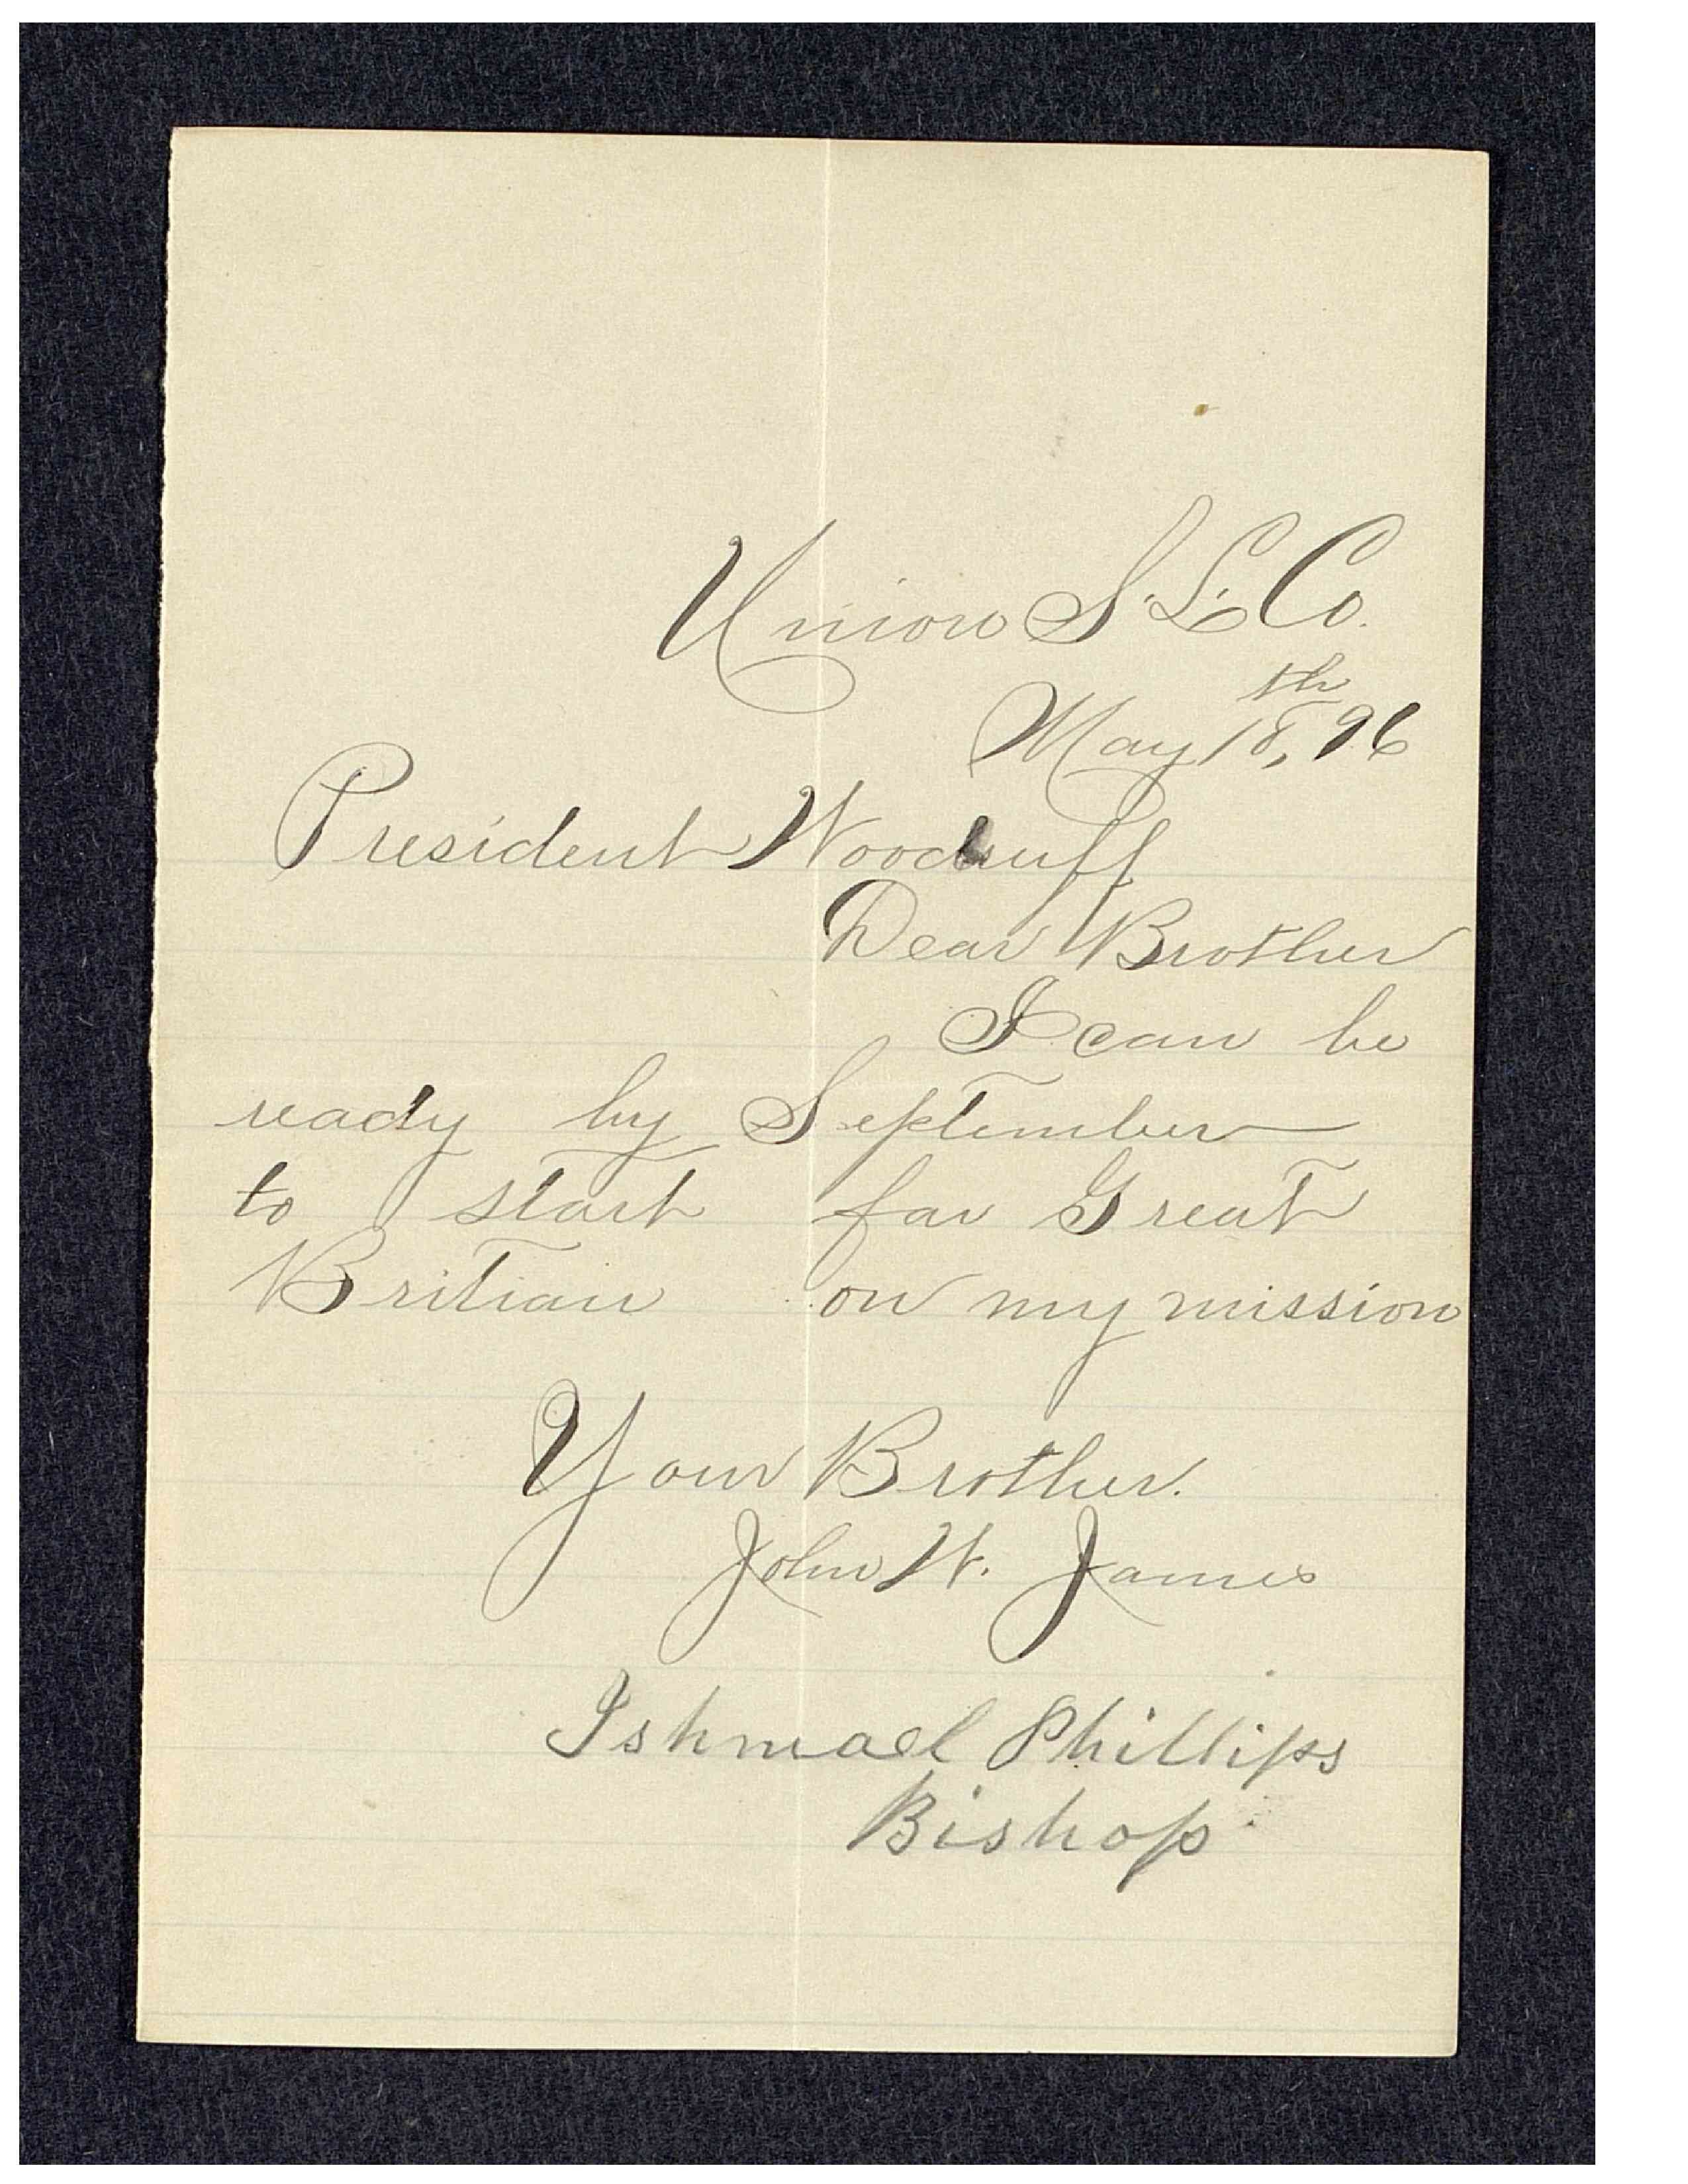 Union S. L. Co.
May 18th, 96
President Woodruff
Dear Brother
I can be
ready by September
to start for Great
Britian on my mission
Your Brother.
John W. James
Ishmael Phillips
Bishop